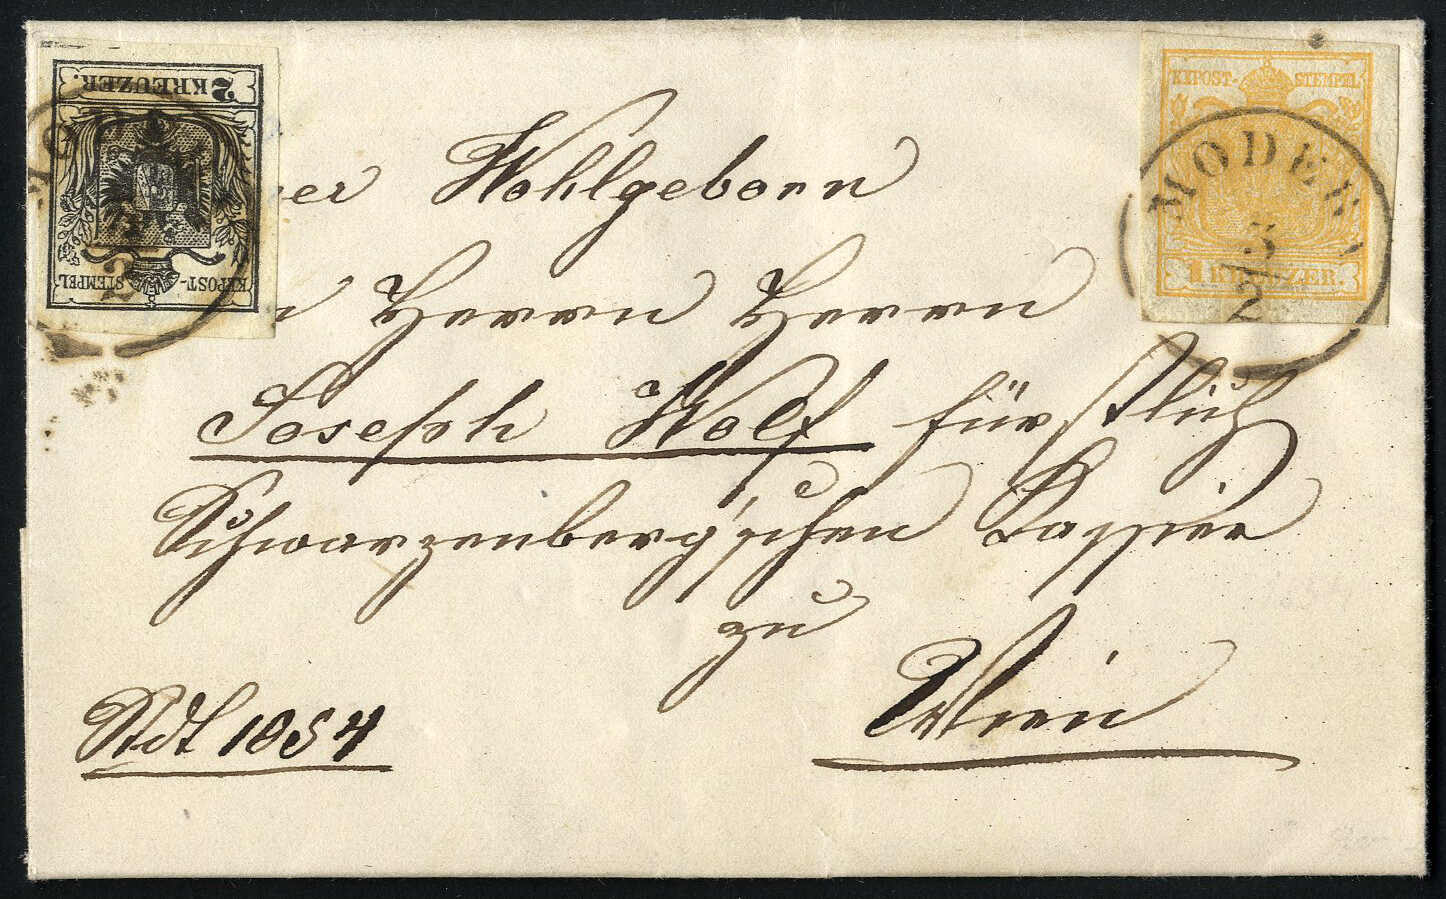 2 KREUZER.
KKPOST-STEMPEL
KKPOST-STEMPEL
1 KREUZER.
MODER
3
2
er Wohlgeborn
n Herrn Herrn
Joseph Wolf fürstlich
Schwarzenberg'schen Kassier
zu
Wien
Stdt 1054